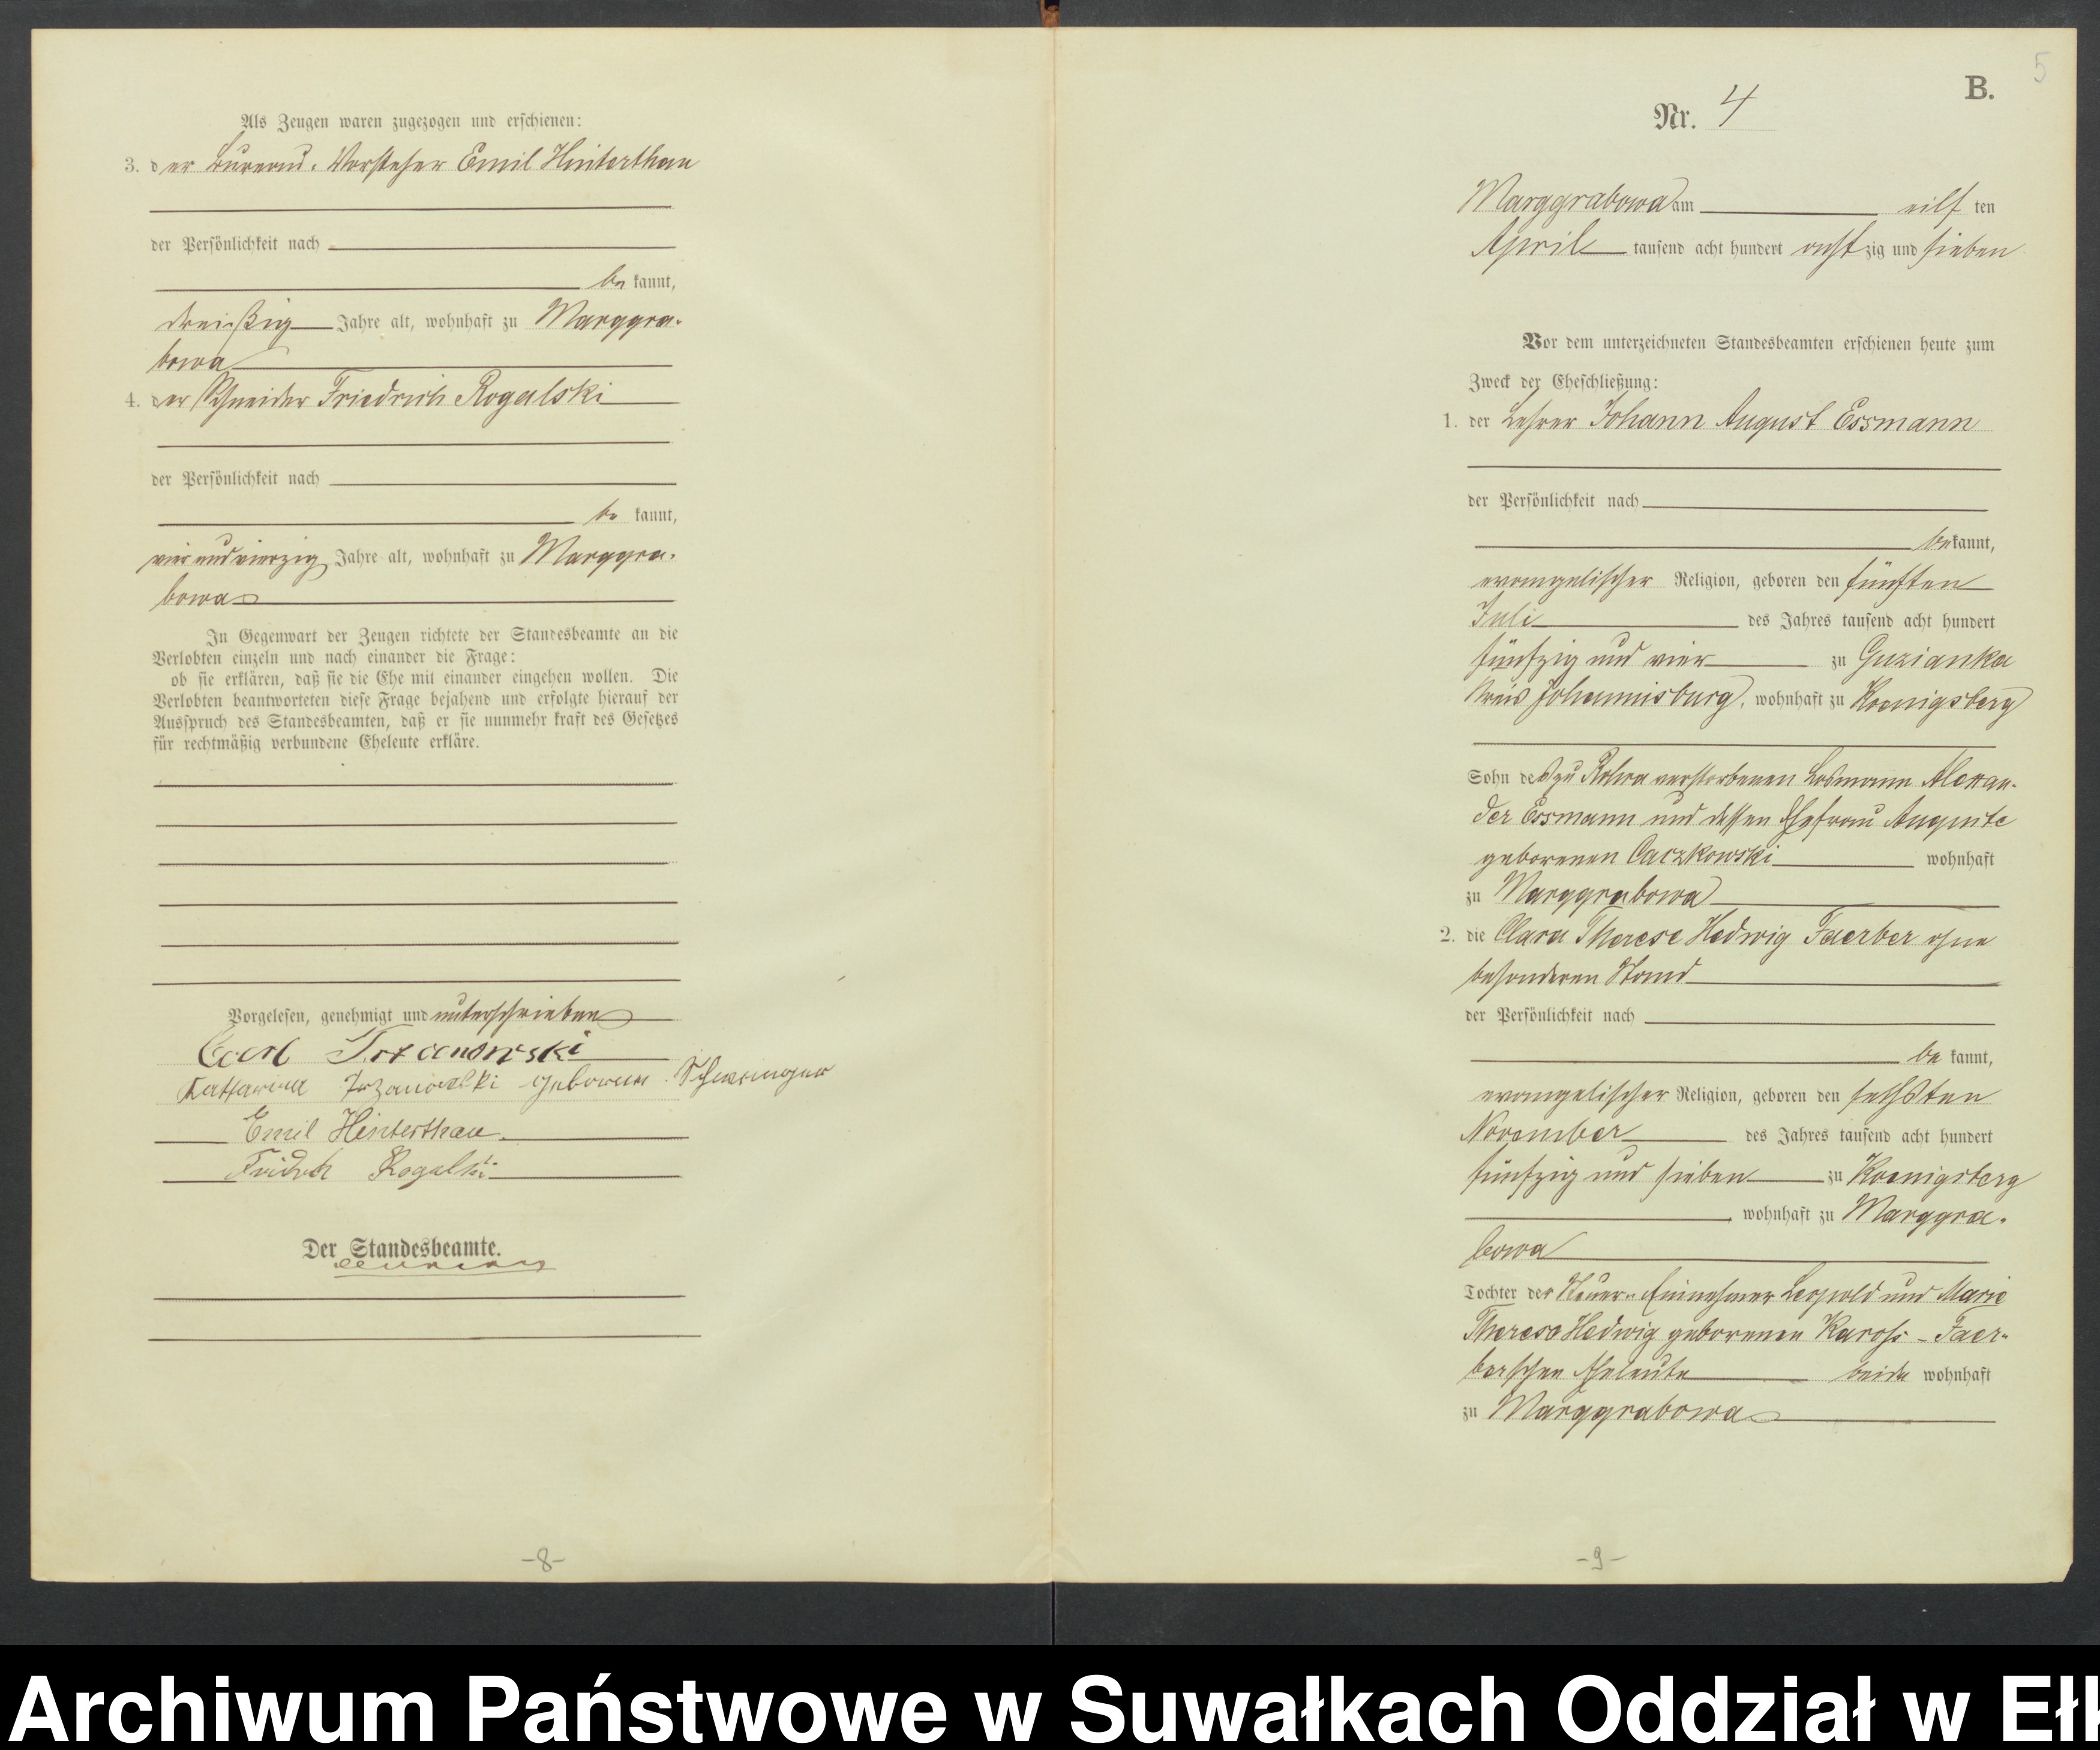 Als Zeugen waren zugezogen und erschienen:
3. der Bureau-Vorsteher Emil Hinterthan
der Persönlichkeit nach
be kannt,
dreißig Jahre alt, wohnhaft zu Marggra-
bowa
4. der Schneider Friedrich Rogalski
der Persönlichkeit nach
be kannt,
vier und vierzig Jahre alt, wohnhaft zu Marggra-
bowa
In Gegenwart der Zeugen richtete der Standesbeamte an die
Verlobten einzeln und nach einander die Frage:
ob sie erklären, daß sie die Ehe mit einander eingehen wollen. Die
Verlobten beantworteten diese Frage bejahend und erfolgte hierauf der
Ausspruch des Standesbeamten, daß er sie nunmehr kraft des Gesetzes
für rechtmäßig verbundene Eheleute erkläre.
Vorgelesen, genehmigt und unterschrieben
Carl Trzanowski
Katharina Trzanowski geborene
Emil Hinterthan.
Rogalski
Der Standesbeamte.
-8-
5
B.
Nr. 4
Marggrabowa am eilf ten
April tausend acht hundert acht zig und sieben
Vor dem unterzeichneten Standesbeamten erschienen heute zum
Zweck der Eheschließung:
1. der Lehrer Johann August Essmann
der Persönlichkeit nach
be kannt,
evangelischer Religion, geboren den fünften
Juli des Jahres tausend acht hundert
fünfzig und vier zu Guzianka
Kreis Johannisburg, wohnhaft zu Koenigsberg
Sohn des zu verstorbenen Losmann Alexan-
der Essmann und dessen Ehefrau Auguste
geborenen Caczkowski wohnhaft
zu Marggrabowa
2. die Clara Therese Hedwig Faerber ohne
besonderen Stand
der Persönlichkeit nach
be kannt,
evangelischer Religion, geboren den sechsten
November des Jahres tausend acht hundert
fünfzig und sieben zu Koenigsberg
wohnhaft zu Marggra-
bowa
Tochter der Steuer-Einnehmer Leopold und Marie
Therese Hedwig geborenen Karoß-Faer-
berschen Eheleute beide wohnhaft
zu Marggrabowa
-9-
Archiwum Państwowe w Suwałkach Oddział w Ełk